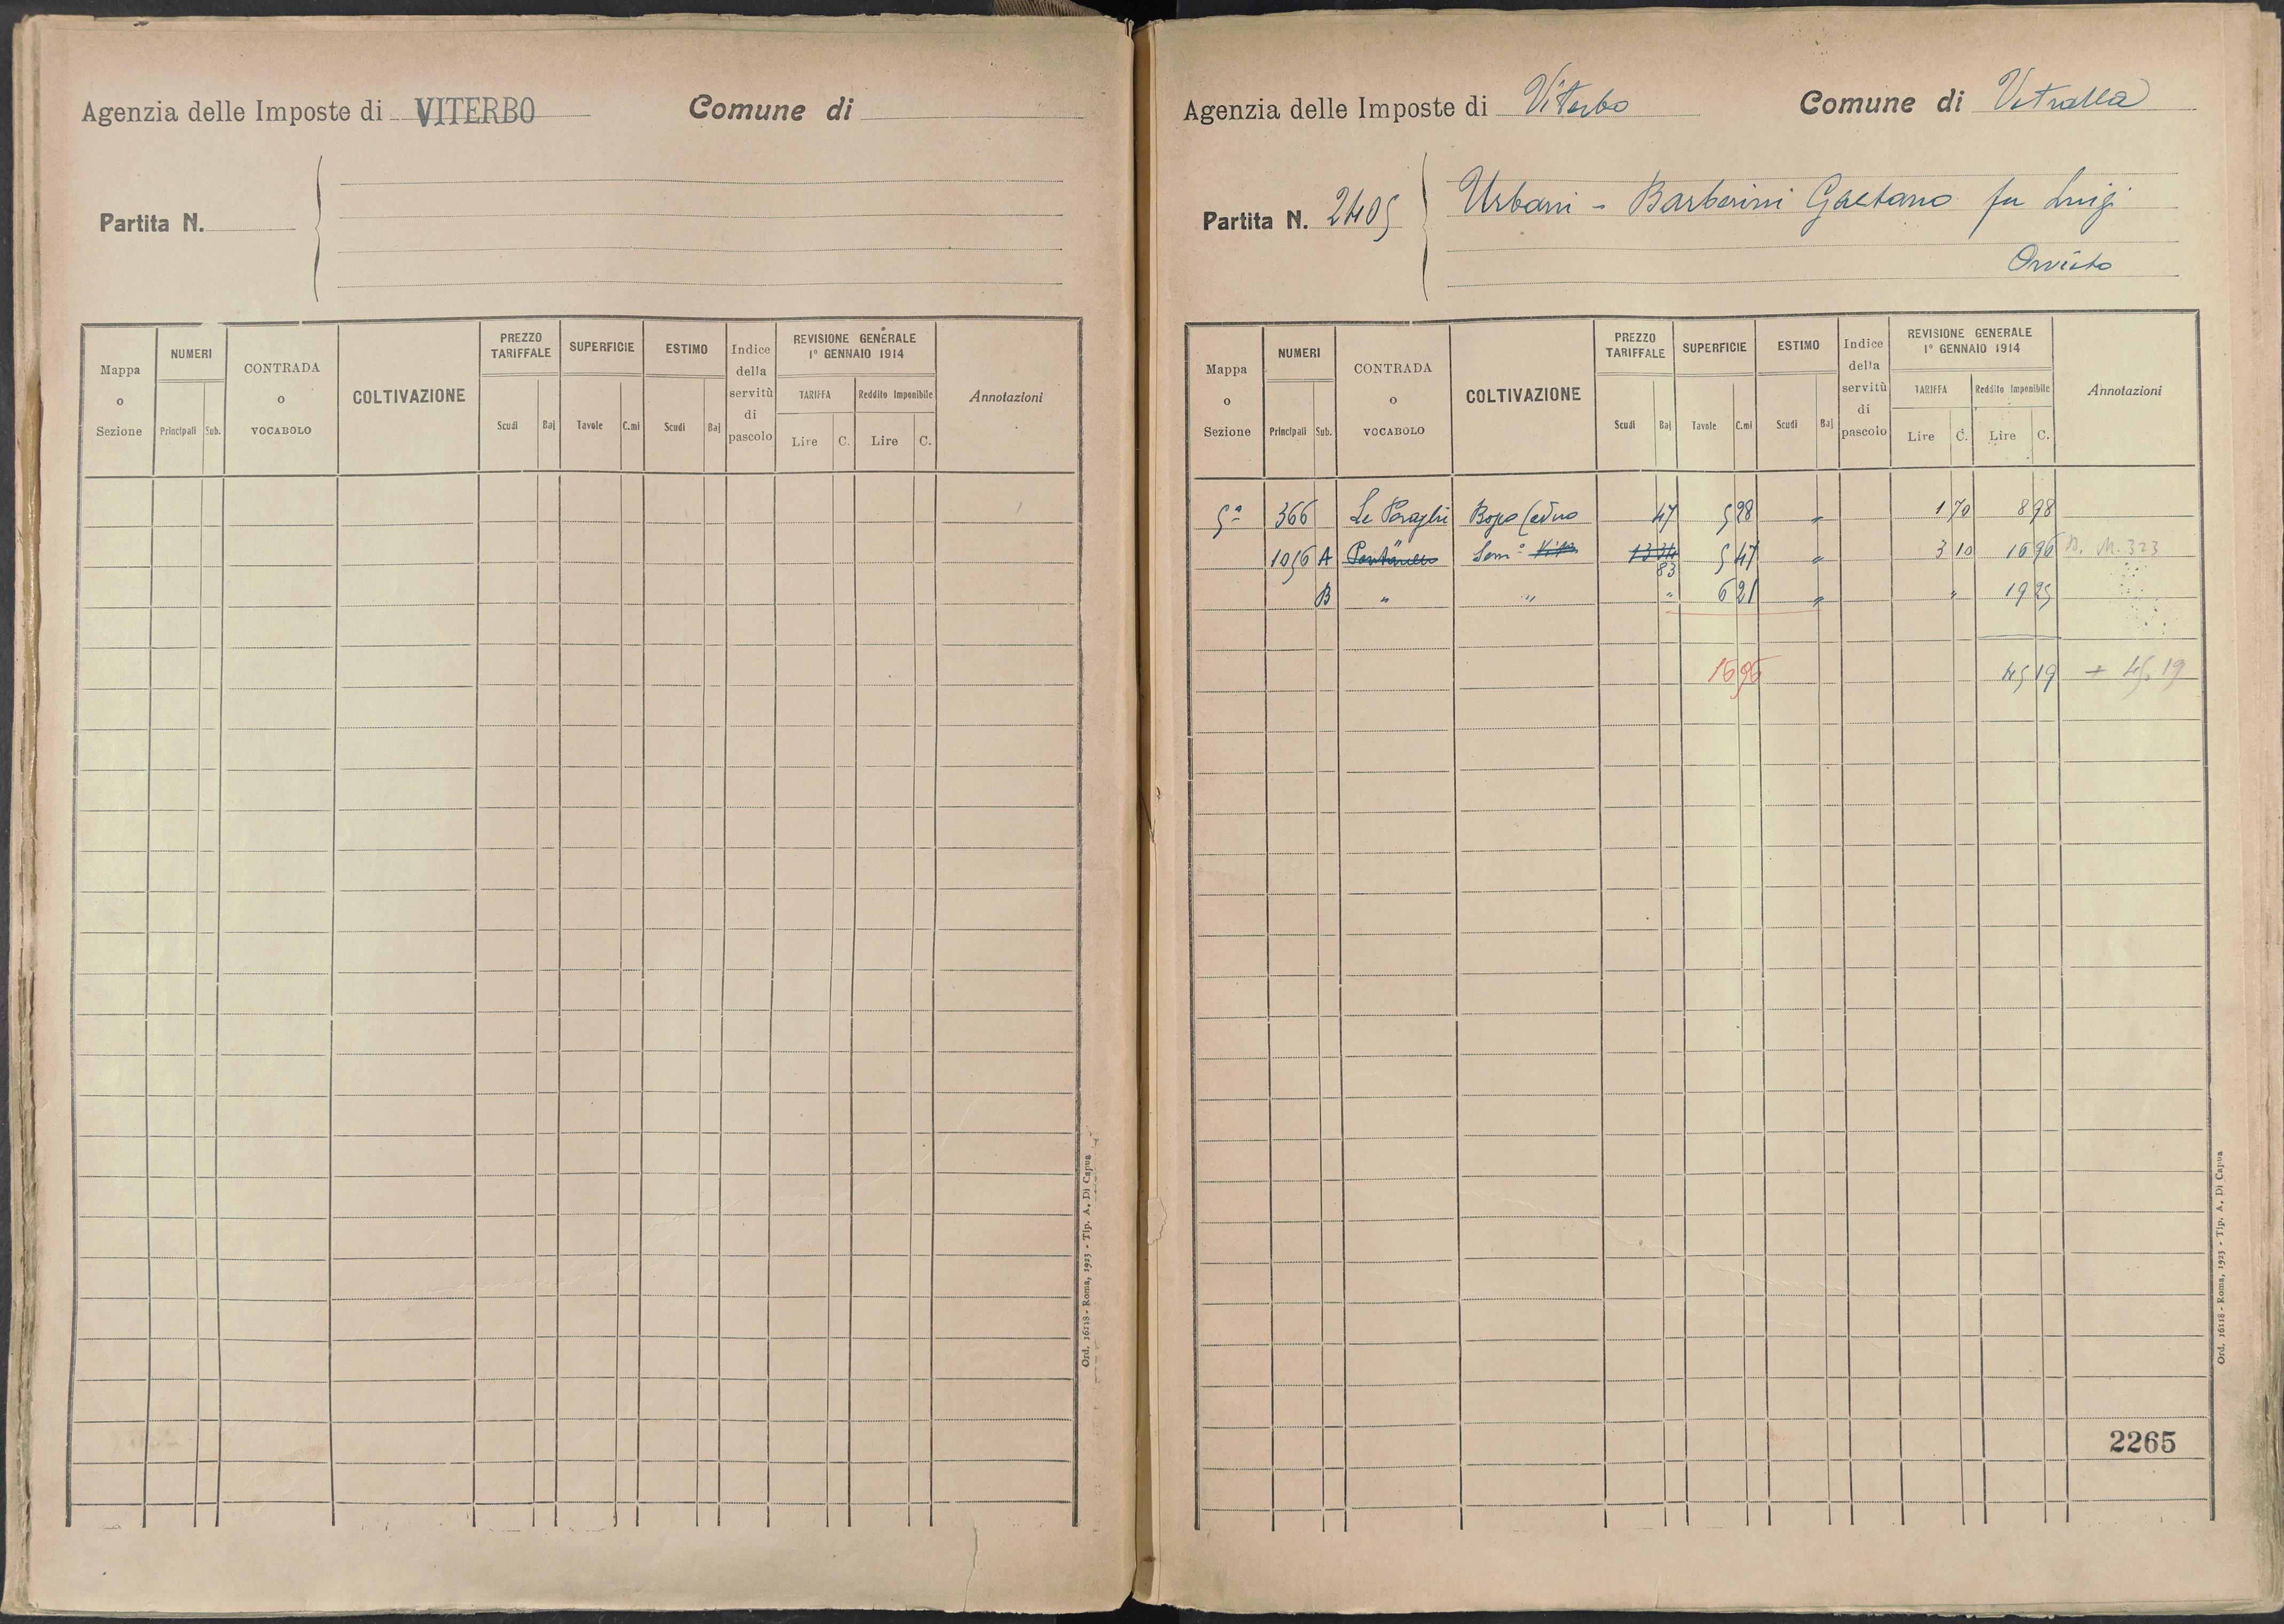 Agenzia delle Imposte di VITERBO Comune di
Partita N.
Mappa o Sezione
NUMERI
Principali Sub.
CONTRADA o VOCABOLO
COLTIVAZIONE
PREZZO TARIFFALE
Scudi Baj
SUPERFICIE
Tavole C.mi
ESTIMO
Scudi Baj
Indice della servitù di pascolo
REVISIONE GENERALE
1° GENNAIO 1914
TARIFFA Reddito Imponibile
Lire C. Lire C.
Annotazioni
Ord. 16118 - Roma, 1923 - Tip. A. Di Capua
Agenzia delle Imposte di Viterbo Comune di Vetralla
Partita N. 2405
Urbani - Barberini Gaetano fu Luigi
Orvieto
Mappa o Sezione
NUMERI
Principali Sub.
CONTRADA o VOCABOLO
COLTIVAZIONE
PREZZO TARIFFALE
Scudi Baj
SUPERFICIE
Tavole C.mi
ESTIMO
Scudi Baj
Indice della servitù di pascolo
REVISIONE GENERALE
1° GENNAIO 1914
TARIFFA Reddito Imponibile
Lire C. Lire C.
Annotazioni
5ª 366 Le Bosco Ceduo 47 5 28 " 1 70 8 98
1056 A Sem° 13 34 5 47 " 3 10 16 96 M. 323
83
B " " " 6 21 " " 19 25
16 96 45 19 + 45,19
2265
Ord. 16118 - Roma, 1923 - Tip. A. Di Capua